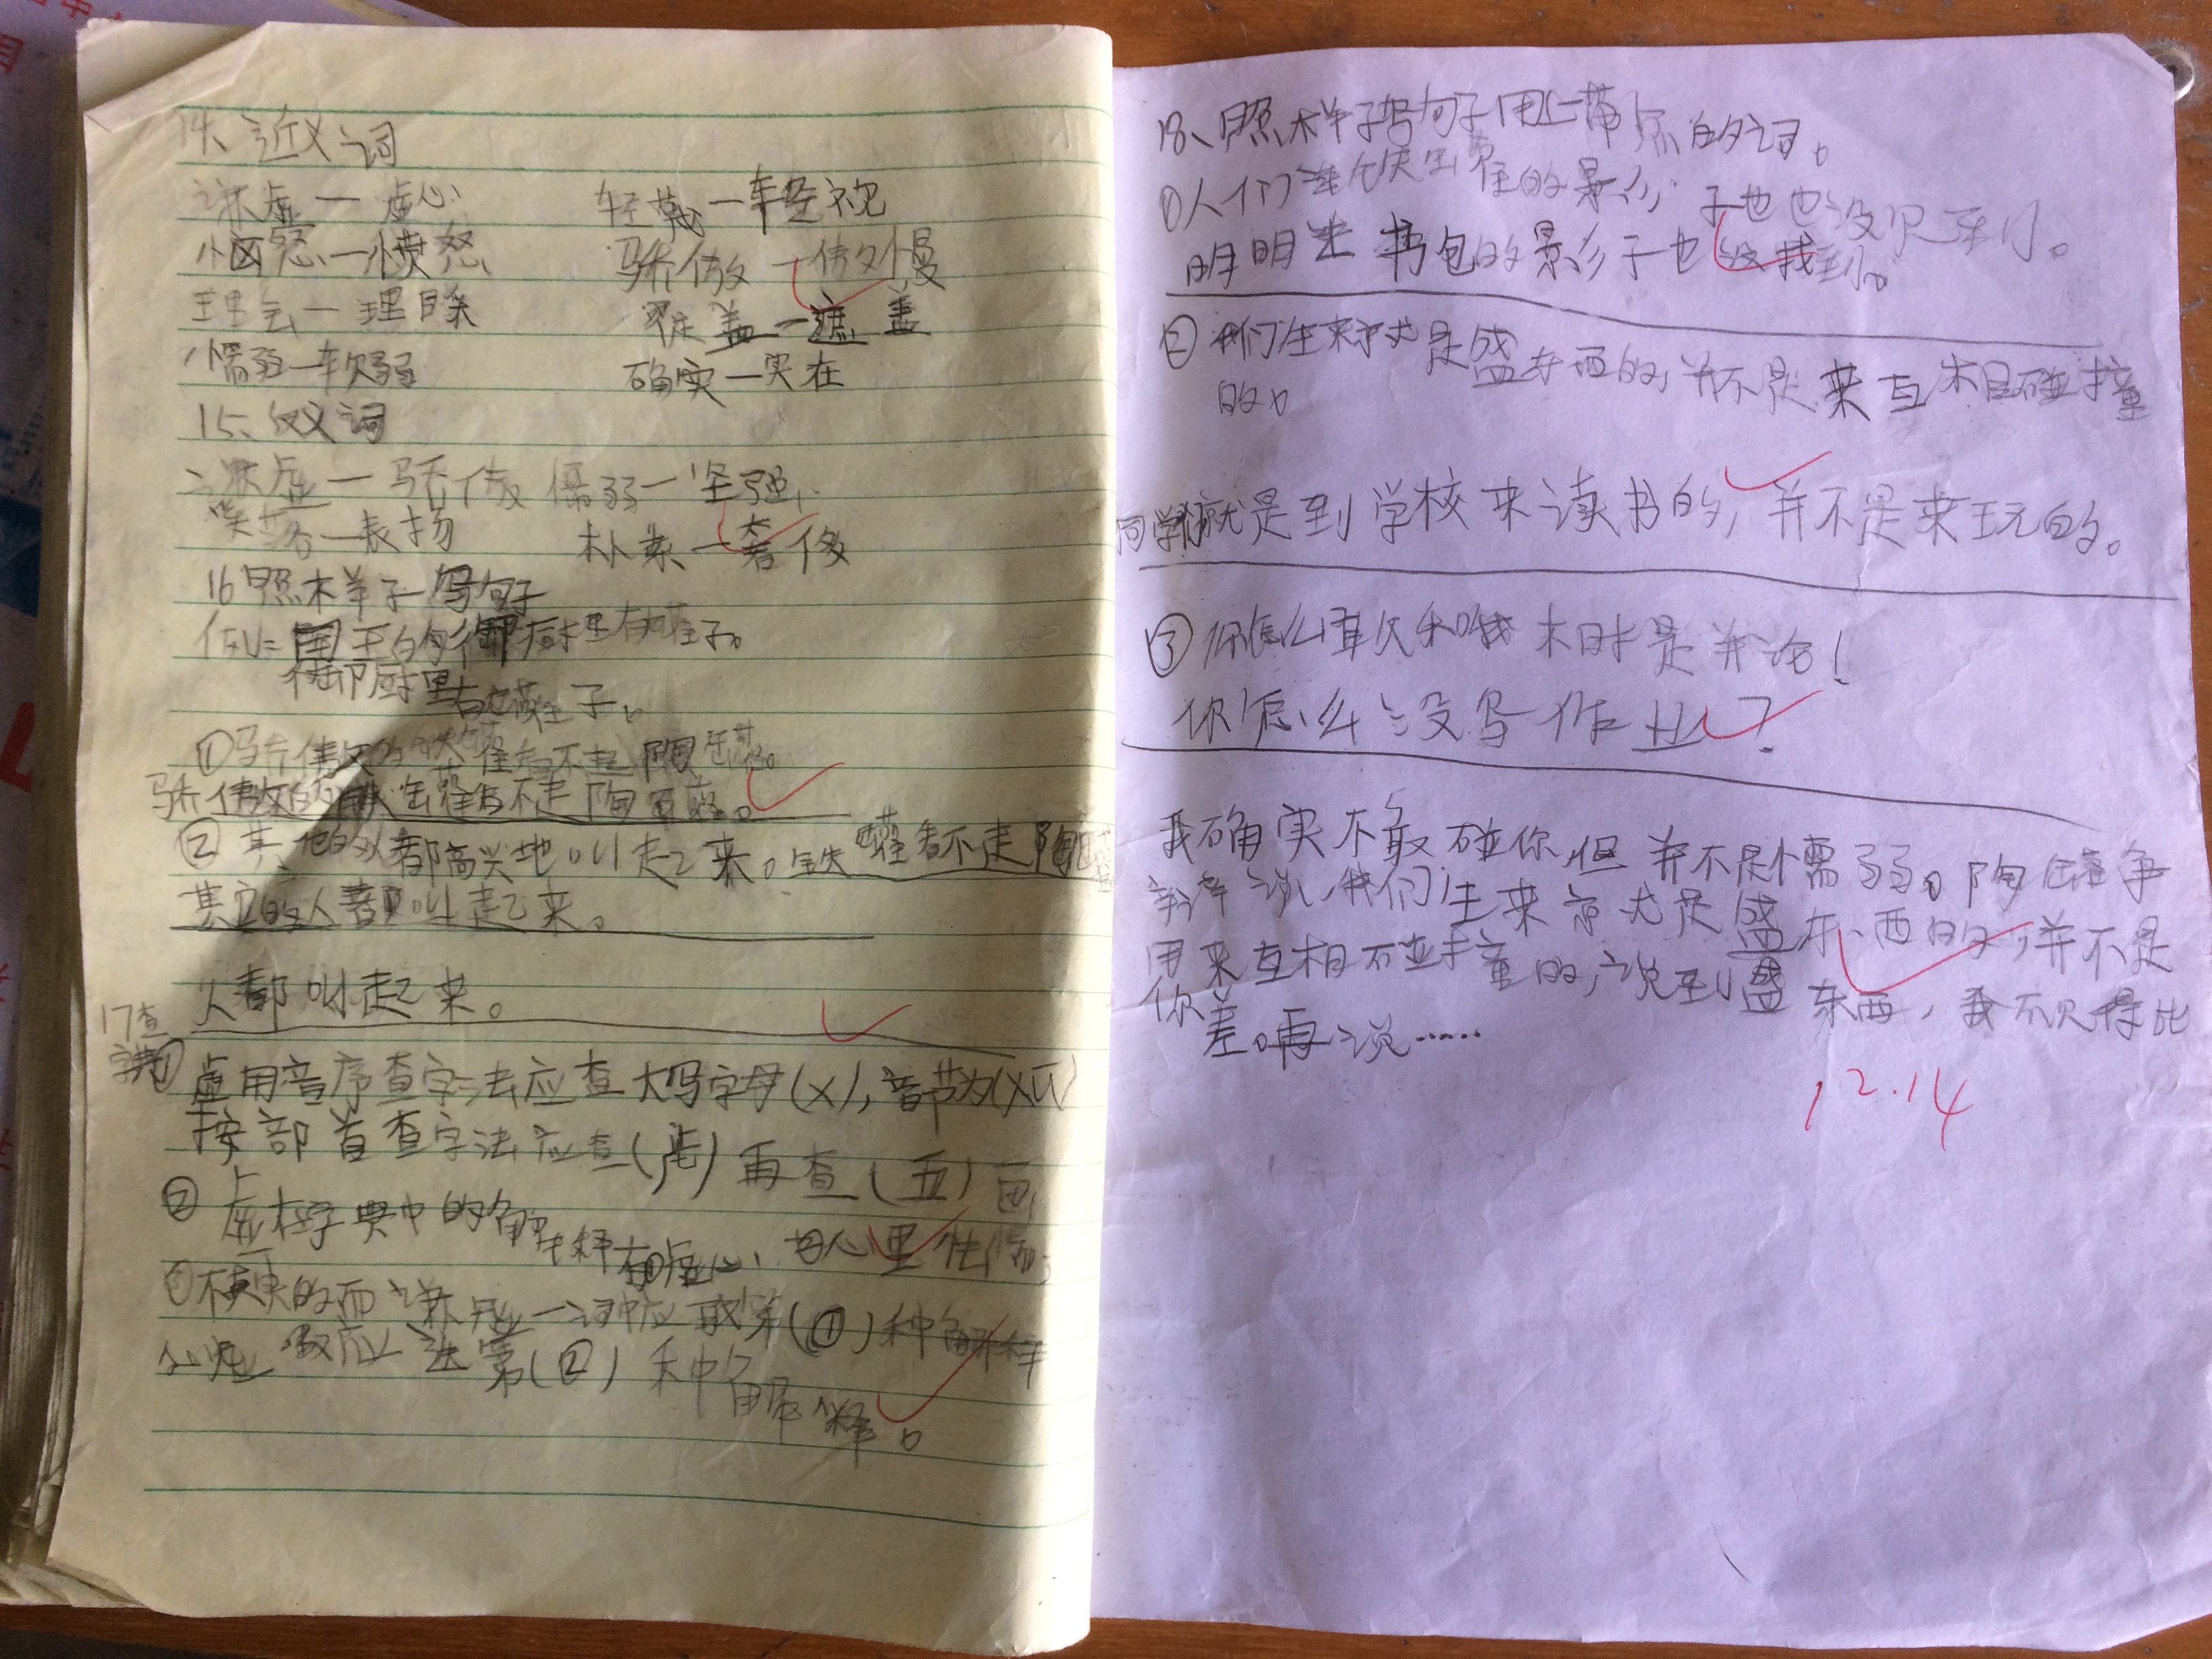 14、近义词
谦虚一虚心 轻蔑一轻视
恼怒一愤怒 骄傲一傲慢
理会一理睬 覆盖一遮盖
懦弱一软弱 确实一实在
15、反义词
谦虚一骄傲 懦弱一坚强
奚落一表扬 朴素一奢侈
16照样子写句子
例:国王的御厨里有罐子。
御厨里有罐子。
①骄傲的铁罐看不起陶罐。
骄傲的铁罐看不起陶罐。
②其他的人都高兴地叫起来。铁罐看不起陶罐
其他的人都叫起来。
人都叫起来。
17查字典
①虚用音序查字法应查大写字母(X),音节为(XU)
按部首查字法应查(虍)再查(五)画
②虚在字典中的解释有①虚心
②不真实的而谦虚一词中应取第(①)种解释
应选第(②)种解释。
18、照样子写句子用上带点的词。
①人们连铁罐的影子也没见到。
明明连书包的影子也没找到。
②我们生来就是盛东西的,并不是来互相碰撞
的。
同学们就是到学校来读书的,并不是来玩的。
③你怎么敢和我相提并论!
你怎么没写作业?
我确实不敢碰你,但并不是懦弱。陶罐争
辩说,我们生来就是盛东西的,并不是
用来互相碰撞的,说到盛东西,我不见得比
你差。再说……
12.14